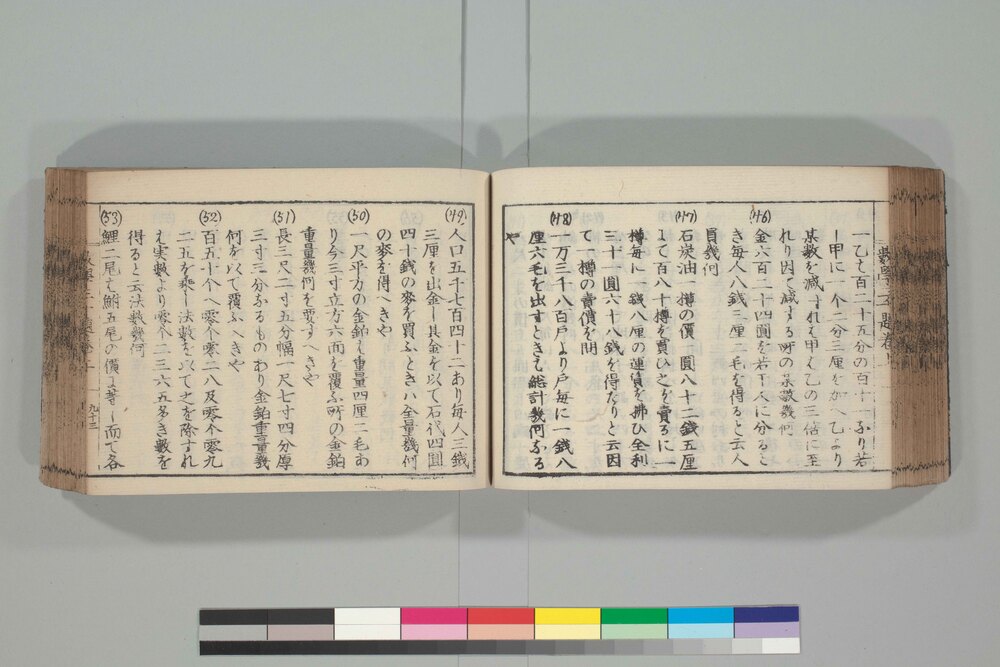 一乙は百二十五分の百十一なり若
し甲に一个二分三厘を加へ乙より
某数を減ずれは甲は乙の三倍に至
れり因て減する所の某数幾何
(46)
金六百二十四圓を若干人に分ると
き毎人八錢三厘二毛を得ると云人
員幾何
(47)
石炭油一樽の價一圓八十二錢五厘
して百八十樽を買ひ之を賣るに一
樽毎に一錢八厘の運賃を拂ひ全利
三十一圓六十八錢を得たりと云因
て一樽の賣價を問
(48)
一万三千八百戸より戸毎に一錢八
厘六毛を出すときは総計幾何なる
や
(49)
人口五千七百四十二あり毎人三錢
三厘を出金し其金を以て石代四圓
四十錢の麥を買ふときハ全量幾何
の麥を得へきや
(50)
一尺平方の金鉑は重量四厘二毛あ
り今三寸立方六面を覆ふ所の金鉑
重量幾何を要すへきや
(51)
長三尺二寸五分幅一尺七寸四分厚
三寸三分なるものあり金鉑重量幾
何を以て覆ふへきや
(52)
百五十个へ零个零二八及零个零九
二五を乗し法数を以て之を除すれ
は実数より零个二三六五多き数を
得ると云法数幾何
(53)
鯉二尾は鮒五尾の價に等し而て各
九十三